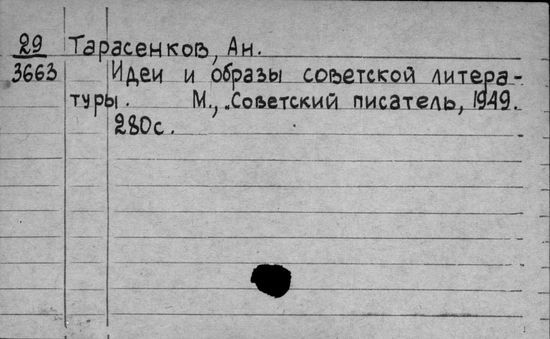 29 Тарасенков, Ан.
3663 Идеи и образы советской литера-
туры. М., „Советский писатель, 1949.
280с.